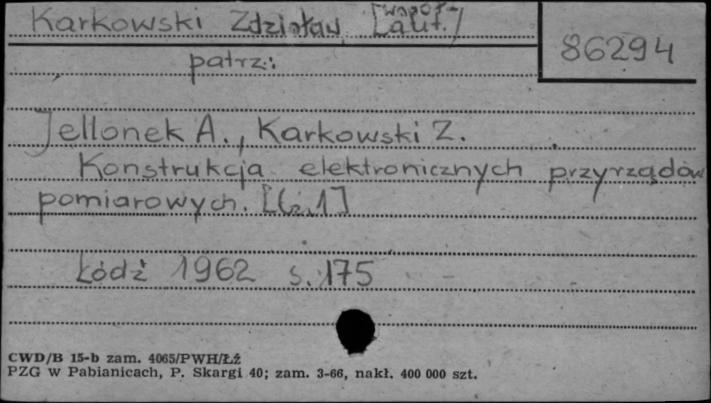 Karkowski Zdzisław [współ-
aut.]
86294
patrz:
Jellonek A., Karkowski Z.
Konstrukcja elektronicznych przyrządów
pomiarowych. [Cz.1]
Łódź 1962 s. 175
CWD/B 15-b zam. 4065/PWH/ŁŻ
PZG w Pabianicach, P. Skargi 40; zam. 3-66, nakł. 400 000 szt.